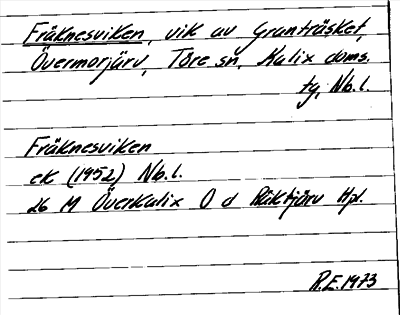 Fräknesviken, vik av Granträsket,
Övermorjärv, Töre sn, Kalix doms.
tg, Nb.l.
Fräknesviken
ek (1952) Nb.l.
26 M Överkalix O d Räktjärv Hpl.
R.E. 1973